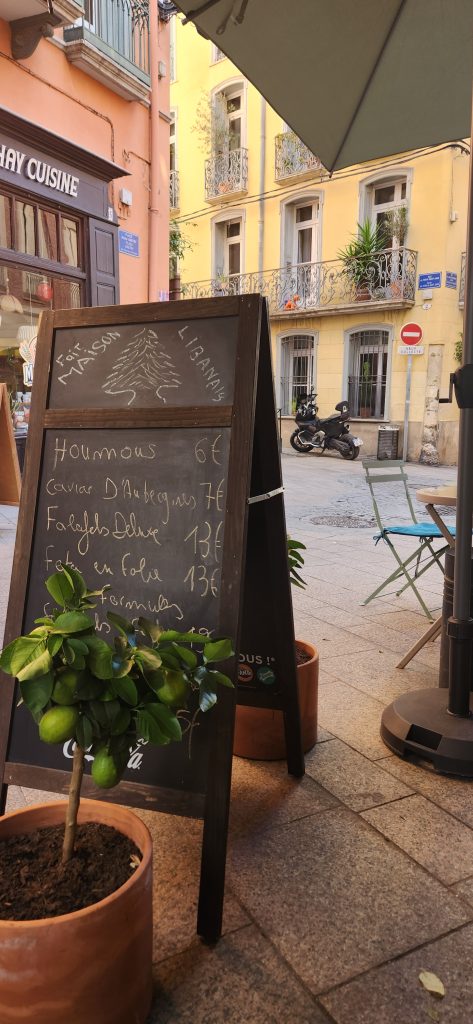 HAY CUISINE
Fait
MAISON
LIBANAIS
Houmous 6€
Caviar D'Aubergines 7€
Falafels Deluxe 13€
Feta en Folie 13€
Formules
OUS !*